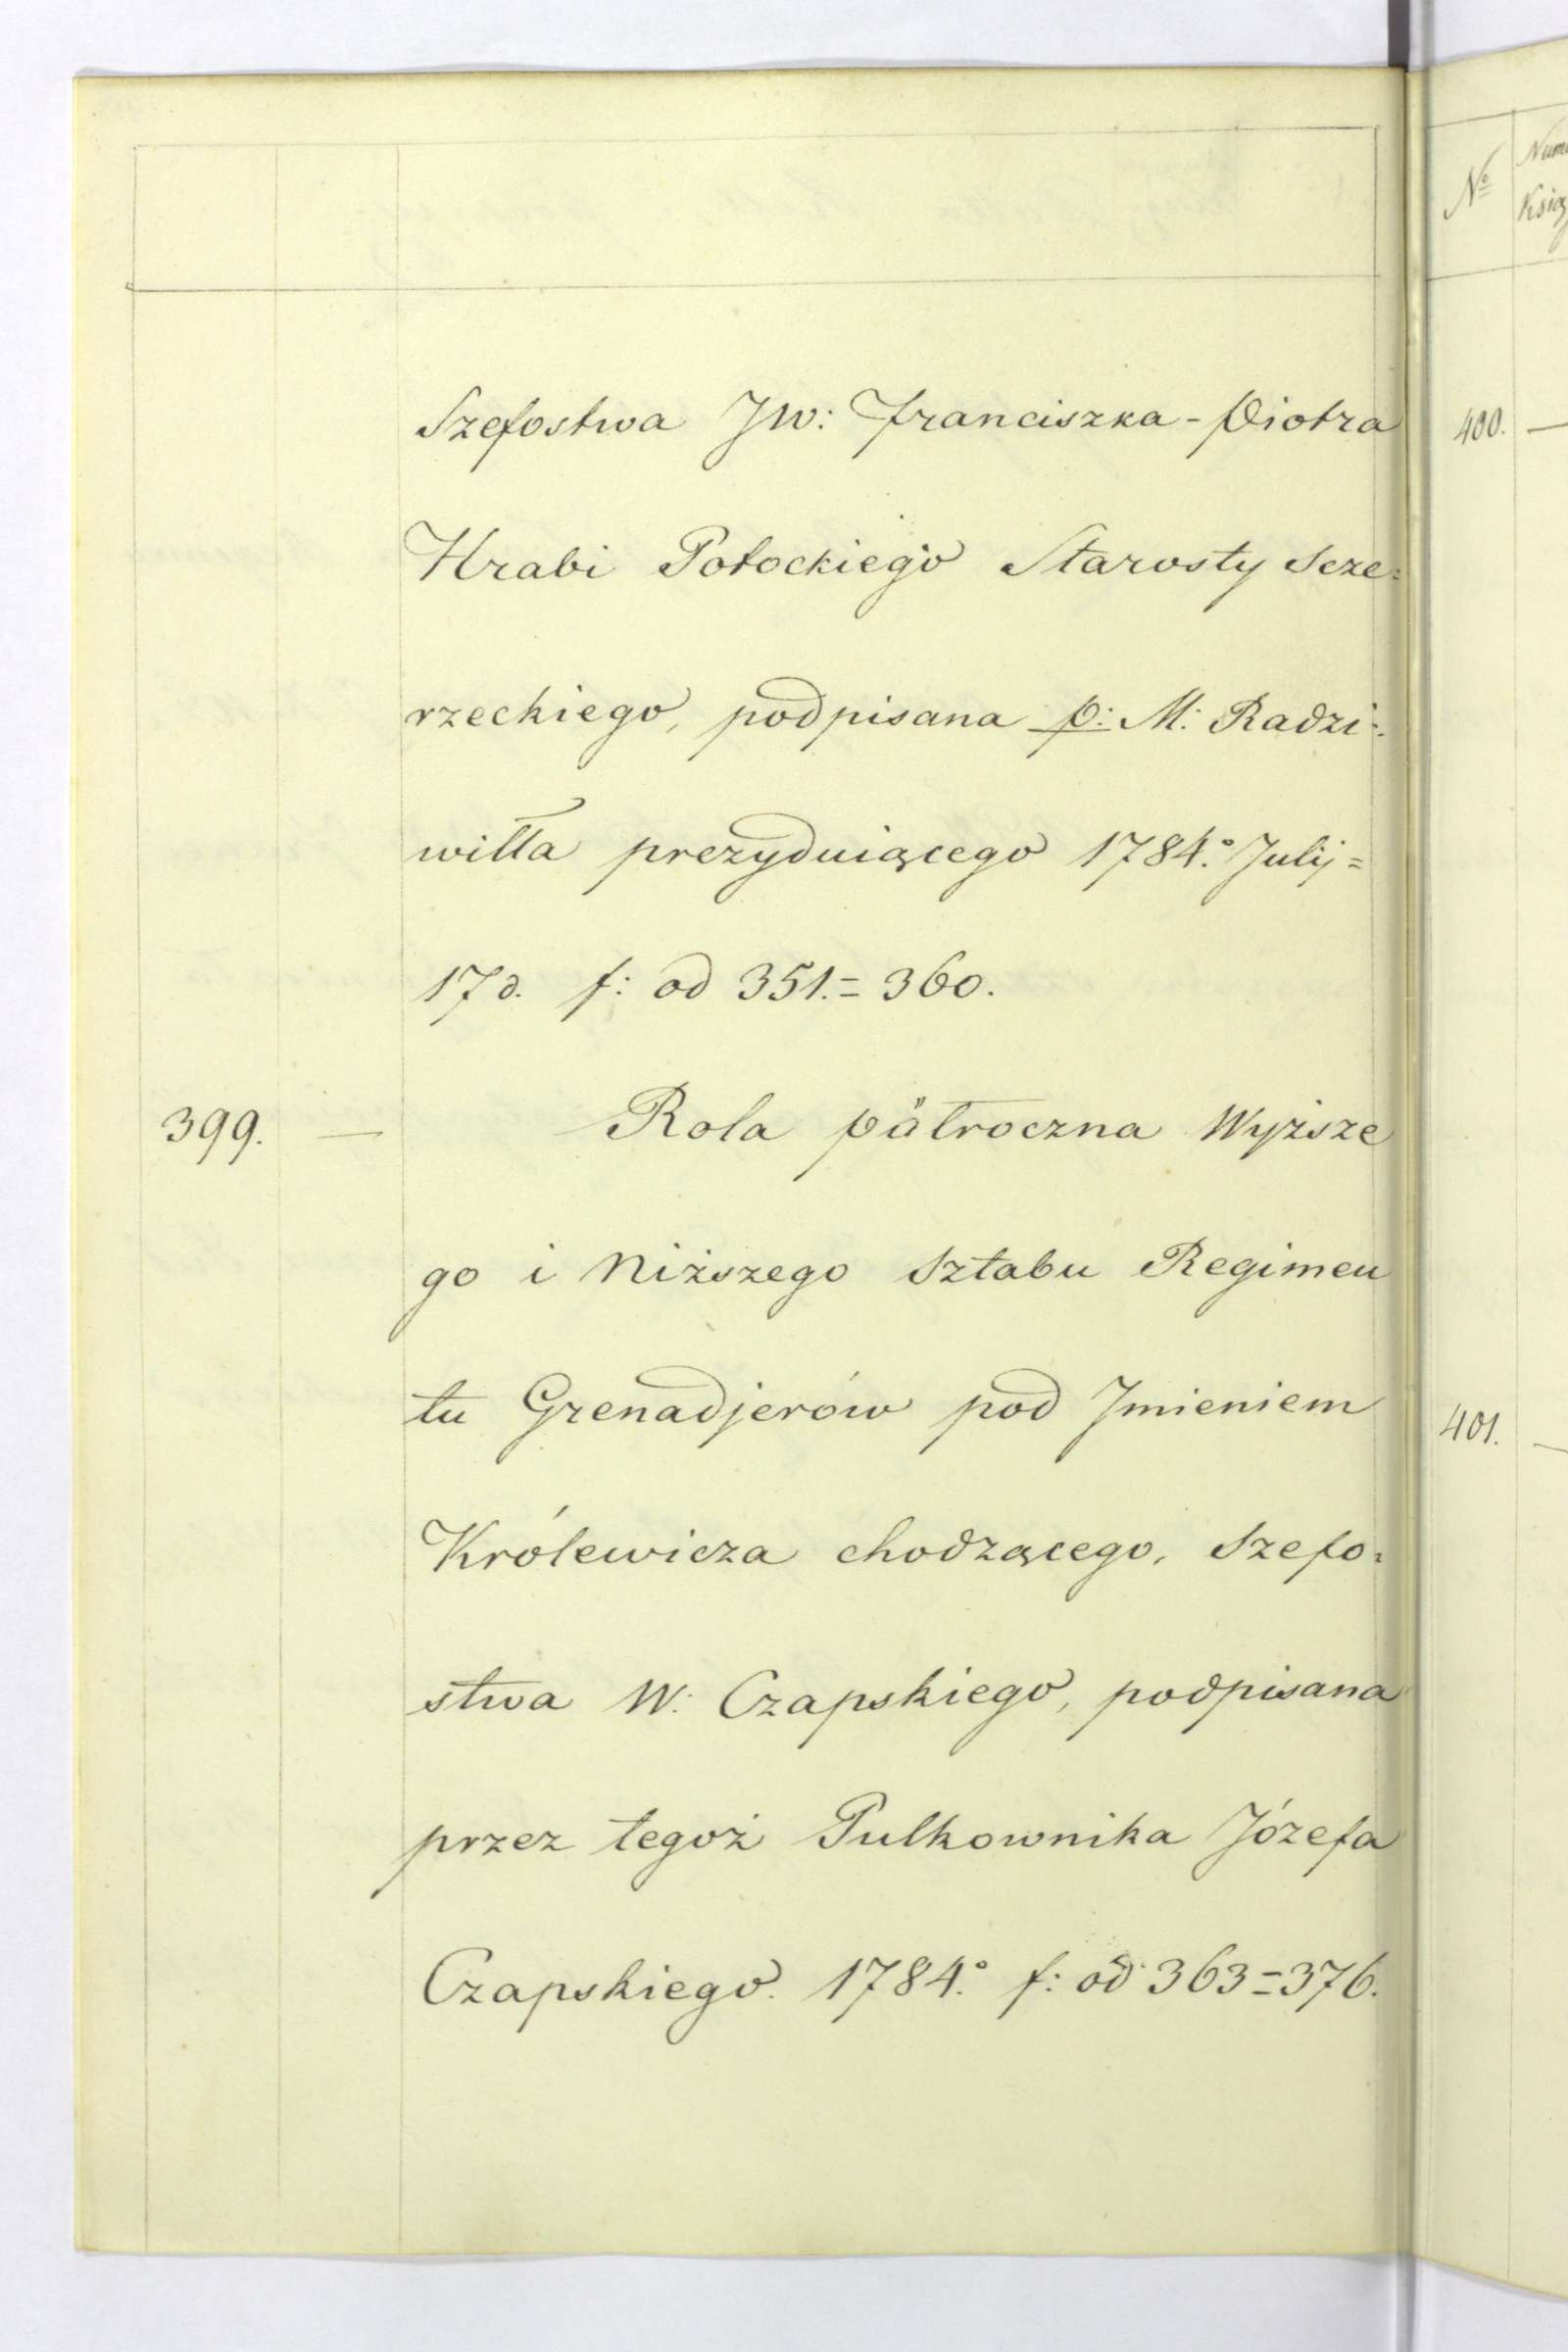 Szefostwa JW: Franciszka-Piotra
Hrabi Potockiego Starosty Scze=
rzeckiego, podpisana p: M: Radzi=
wiłła prezyduiącego 1784.° Julij=
17 d. f: od 351.=360.
399. — Rola pułroczna Wyższe
go i Niższego Sztabu Regimen
tu Grenadjerów pod Jmieniem
Królewicza chodzącego, Szefo=
stwa W: Czapskiego, podpisana
przez tegoż Pulkownika Józefa
Czapskiego. 1784.° f: od 363=376.
№
400. —
401. —